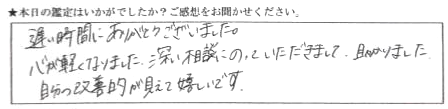 ★本日の鑑定はいかがでしたか？ご感想をお聞かせください。
遅い時間にありがとうございました。
心が軽くなりました。深い相談にのっていただきまして、助かりました。
自分の改善的が見えて嬉しいです。